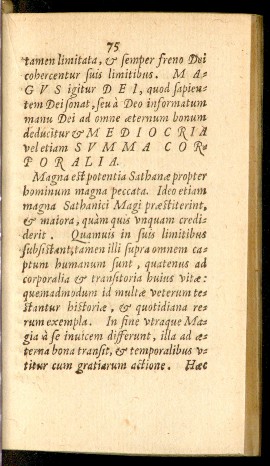 75
tamen limitata, & semper freno Dei
cohercentur suis limitibus. M A-
G V S igitur D E I, quod sapien-
tem Dei sonat, seu à Deo informatum
manu Dei ad omne æternum bonum
deducitur & M E D I O C R I A
vel etiam S V M M A C O R-
P O R A L I A.
Magna est potentia Sathanæ propter
hominum magna peccata. Ideo etiam
magna Sathanici Magi præstiterint,
& maiora, quàm quis vnquam credi-
derit. Quamuis in suis limitibus
subsistant, tamen illi supra omnem ca-
ptum humanum sunt, quatenus ad
corporalia & transitoria huius vitæ:
quemadmodum id multæ veterum te-
stantur historiæ, & quotidiana re-
rum exempla. In fine vtraque Ma-
gia à se inuicem differunt, illa ad æ-
terna bona transit, & temporalibus v-
titur cum gratiarum actione. Hæc